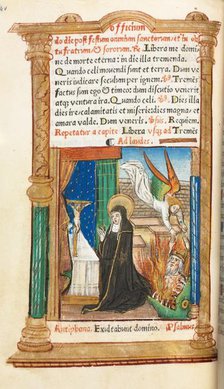 Officium
do die post festum omnium sanctorum: et in obi
tu fratrum & sororum. ℟. Libera me domi
ne de morte eterna: in die illa tremenda.
Quando celi movendi sunt et terra. Dum ve
neris iudicare seculum per ignem. ℣. Tremēs
factus sum ego et timeo: dum discussio venerit
atq; ventura ira. Quando celi. ℣. Dies illa
dies ire: calamitatis et miserie: dies magna: et
amara valde. Dum veneris. ℣sus. Requiem.
Repetatur a capite Libera usq; ad Tremēs
Ad laudes.
Antiphona. Exultabunt domino. Psalmus